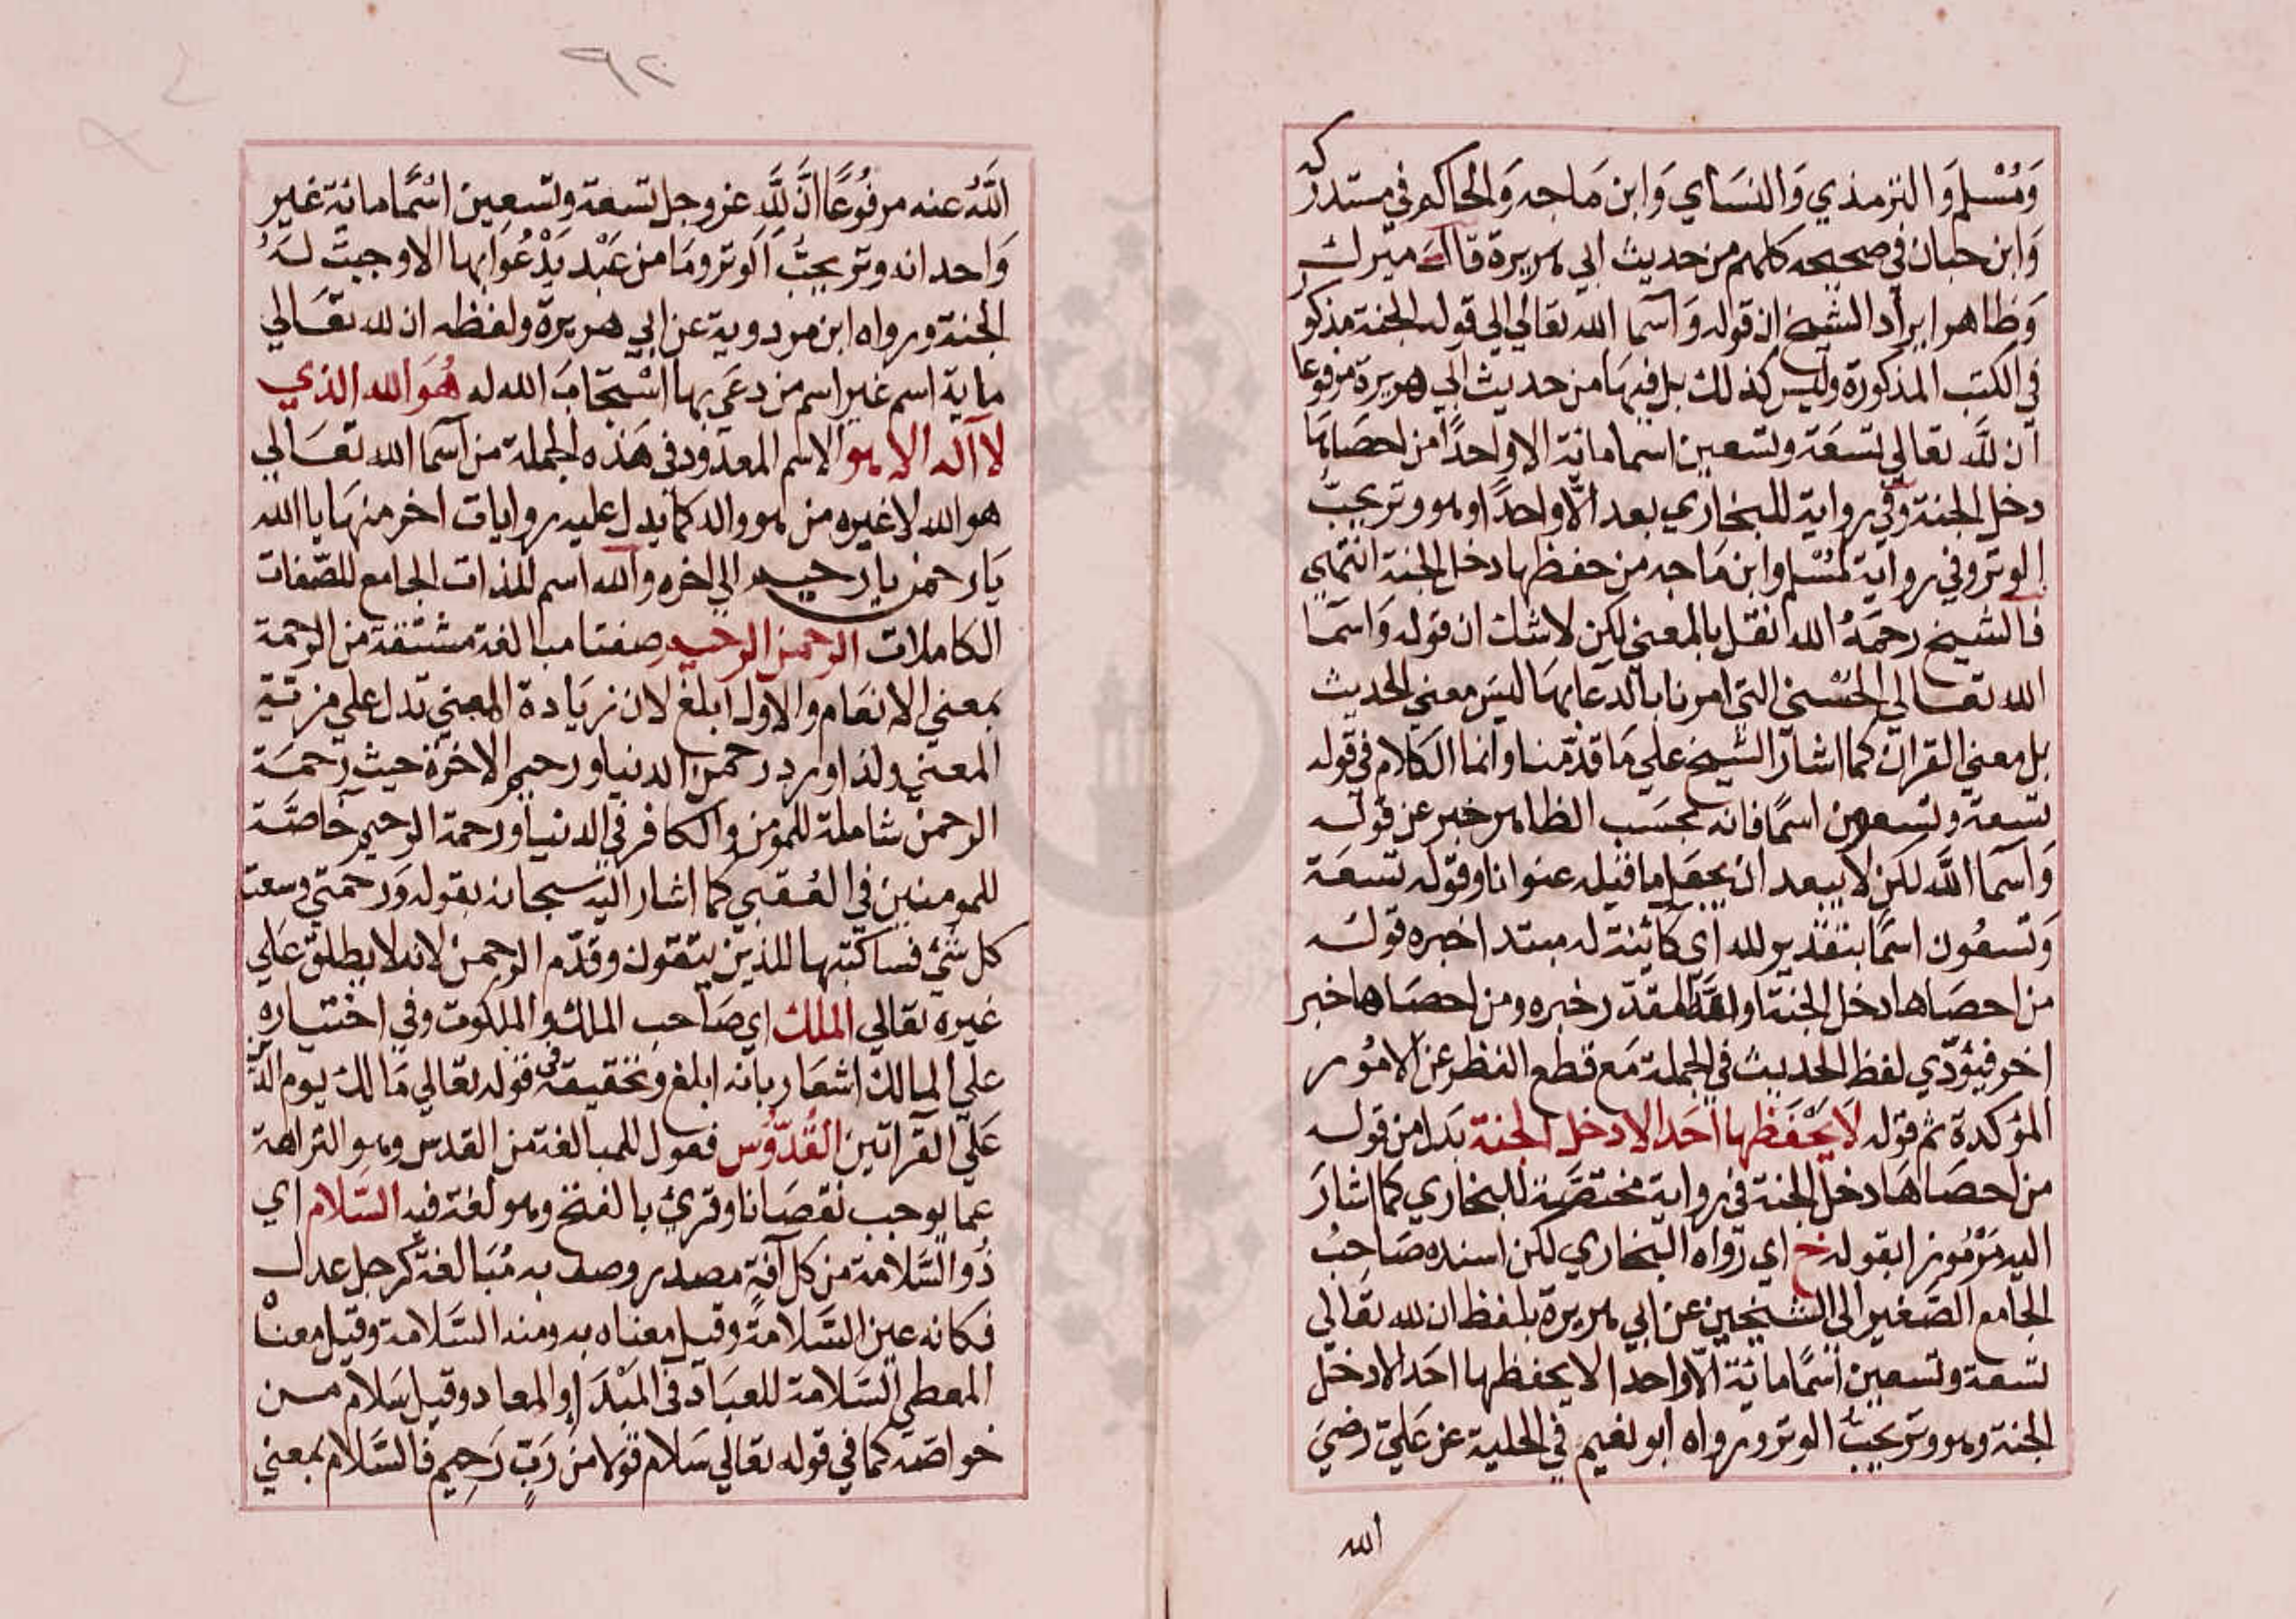 ومُسْلم والترمذي والنسَاي وَابن مَاجه وَالحاكم في مستدركه
وَابن حبان في صحيحه كلهم من حديث ابي هريرة قال ميرك
وَظاهر ايراد الشيخ ان قوله وَاسما الله تعالي الي قوله الجنة مذكور
في الكتب المذكورة وليس كذلك بل فيهَا من حديث ابي هريرة مرفوعا
ان لله تعالي تسعَة وتسعين اسما مائة الا واحدًا من احصَاهَا
دخل الجنة وفي رواية للبخاري بعد الّا واحدًا وهو وتر يحبّ
الوتر وفي رواية لمُسْلم وابن مَاجه من حفظها دخل الجنة انتهي
فالشيخ رحمَهُ الله نقل بالمعني لكن لا شك ان قوله وَاسمَا
الله تعالي الحُسْني التي امرنا بالدعا بهَا ليسَ معني الحديث
بل معني القران كما اشار الشيخ علي مَا قدّمنا وانما الكلام في قوله
تسعة وتسعون اسمًا فانه بحَسَب الظاهر خبر عن قوله
وَاسمَا الله لكن لا يبعد ان يجعَل ما قبله عنوانا وقوله تسعَة
وَتسعُون اسمًا بتقدير لله اي كائنة له مبتدا خبره قوله
من احصَاها دخل الجنة او لله المقدّر خبره ومن احصَاها خبر
اخر فيؤدّي لفظ الحديث في الجملة مَع قطع النظر عن الامُور
المؤكدة ثم قوله لَا يحْفَظها احَد الا دخل الجنة بدَل من قوله
من احصَاهَا دخل الجنة في رواية مختصَرة للبخاري كما اشارَ
اليه مَرْمُوزا بقوله خ اي رَواه البخاري لكن اسنده صَاحبُ
الجامع الصّغير الي الشيخين عن ابي هريرة بلفظ ان لله تعَالي
تسعة وتسعين اسمًا مائة الّا واحدا لا يحفظها احَد الا دخل
الجنة وهو وتر يحبّ الوتر ورواه ابو نعيم في الحلية عن عَليّ رضيَ
الله
٩٢
اللّهُ عنه مرفُوعًا انّ للَّهِ عز وجل تسعة وتسعين اسْمًا مائة غير
وَاحد انه وتر يحبُّ الوتر ومَا من عَبْد يَدْعُوا بها الا وجبتْ لهُ
الجنة ورواه ابن مردوية عن ابي هريرة ولفظه ان لله تعَالي
ماية اسم غير اسم من دعَي بها اسْتجَابَ الله له هُوَ الله الذي
لا اله الا هو الاسم المعدُود في هَذه الجملة من اسمَا الله تعَالي
هو الله لا غيره من هو واله كما يدل عليه روايات اخر منهَا يا الله
يَا رحمن يا رحيم الي اخره والله اسم للذات الجامع للصّفات
الكاملات الرحمن الرحيم صفتا مبالغة مشتقة من الرحمة
بمعني الانعَام والاول ابلغ لان زيَادة المبني تدل علي مزية
المعني ولذا ورد رحمن الدنيا ورحيم الاخرة حيث رَحمَة
الرحمن شاملة للمومن والكافر في الدنيا ورحمة الرحيم خاصَّة
للمومنين في العُقبي كما اشار اليه سبحانه بقوله وَرحمتي وسعت
كل شئ فساكتبها للذين يتقون وقدّم الرحمن لانه لا يطلق عَلي
غيره تعالي الملك اي صَاحب الملك والملكوت وفي اختيَاره
علي المالك اشعَار بانه ابلغ وتحقيقه في قوله تعَالي مَالك يوم الدين
عَلَي القرآتين القُدّوُس فعول للمبالغة من القدس وهو النزاهة
عما يوجب نقصَانا وقريَ بالفتح وهو لغة فيه السّلام اي
ذُو السَّلامة من كل آفةٍ مصدر وصف به مُبَالغة كرجل عدل
فكانه عين السَّلامَة وقيل معناه به ومنه السَّلامة وقيل معناه
المعطي السَّلامة للعبَاد في المَبْدَا والمعاد وقيل سَلام من
خواصّه كما في قوله تعَالي سَلام قولا من رَبٍّ رَحِيم فالسَّلام بمعني